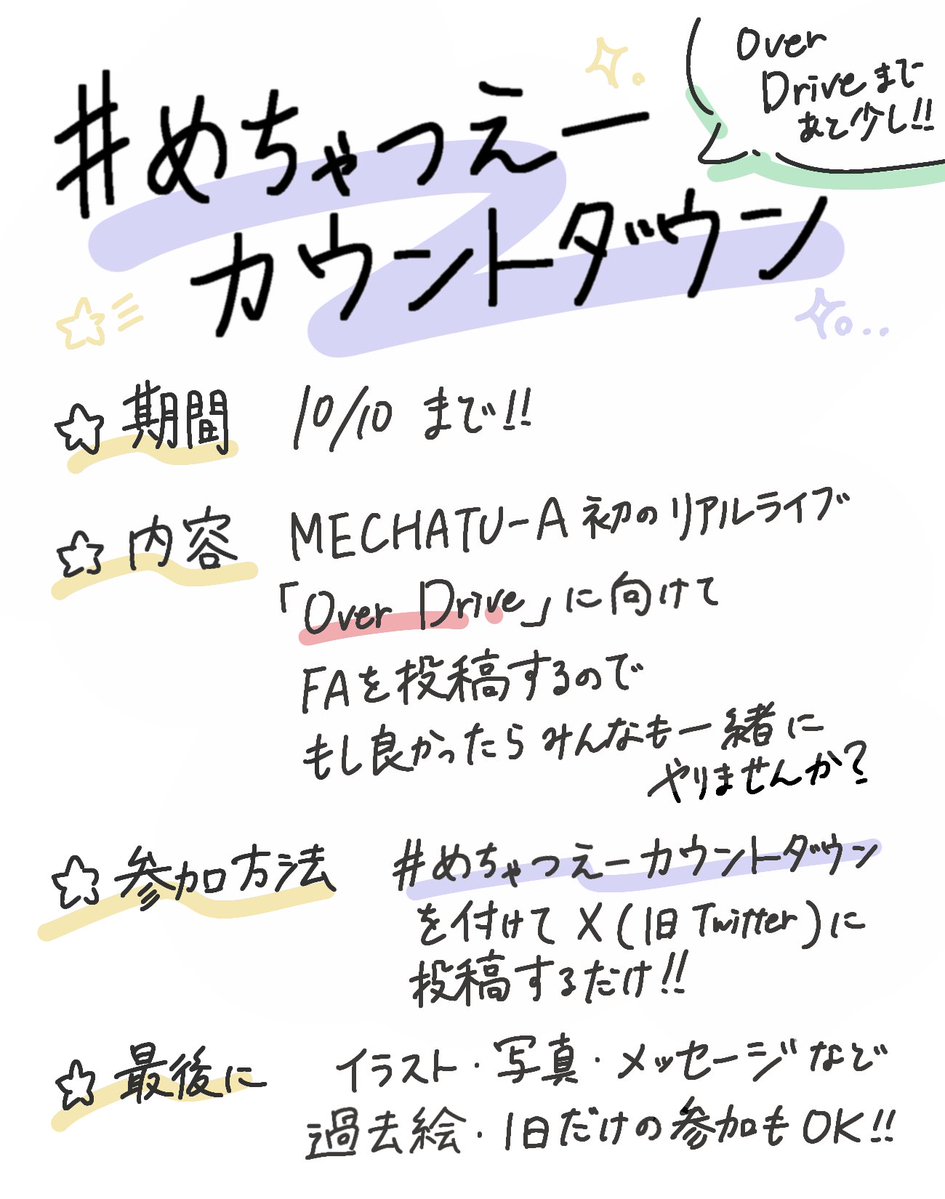 #めちゃつえー
カウントダウン
Over
Driveまで
あと少し!!
☆期間 10/10 まで!!
☆内容 MECHATU-A 初のリアルライブ
「Over Drive」に向けて
FAを投稿するので
もし良かったらみんなも一緒に
やりませんか?
☆参加方法 #めちゃつえーカウントダウン
を付けて X (旧 Twitter) に
投稿するだけ!!
☆最後に イラスト・写真・メッセージなど
過去絵・1日だけの参加もOK!!